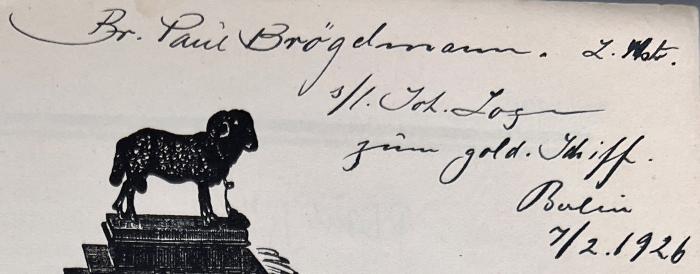 Br. Paul Brögelmann. Z. Mstr.
s/l. Joh. Loge
zum gold. Schiff.
Berlin
7/2.1926